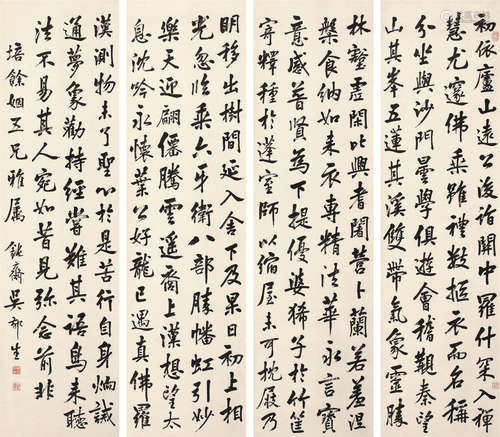 初依廬山遠公後詣關中羅什藁入禪
慧尤邃佛乘雖禮数摳衣而名稱
分坐與沙門曇學俱遊會稽覯秦望
山其峯五蓮其溪雙帶氣象靈勝
林壑虛閑比興耆闍營卜蘭若羞澀
槃食納如來衣專精法華永言寶
意感普賢為下提優婆稀子於竹筐
寄釋種於蓬室師以縮屋未可枕肱乃
明移出樹間延入舍下及杲日初上相
光忽臨乘六牙衛八部勝幡虹引妙
樂天迎翩僊騰雲遥裔上漢想望太
息沈吟永懷葉公好龍已遇真佛羅
漢測物未了聖心於是苦行自身炯誡
通夢象勸持經嘗難其語鳥來聽
法不易其人宛如昔見弥念前非
培餘姻五兄雅屬 鈍齋吴郁生